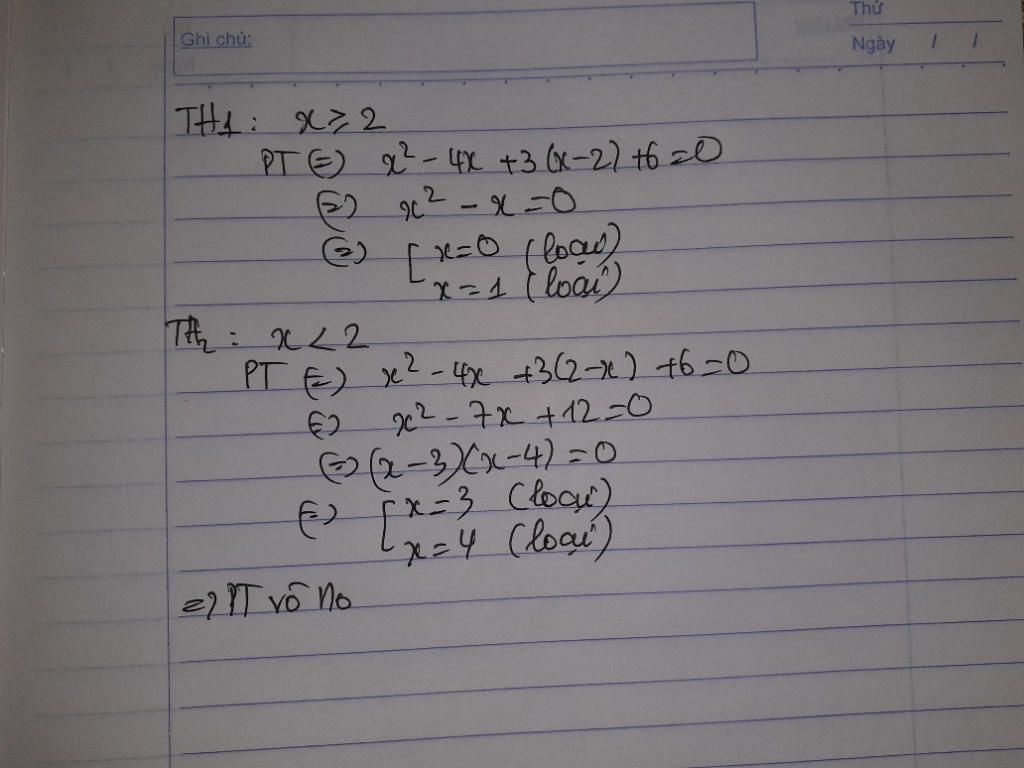 Thứ
Ghi chú:
Ngày / /
TH1: x ≥ 2
PT (=) x² - 4x + 3(x-2) + 6 = 0
(=) x² - x = 0
(=) [ x = 0 (loại)
x = 1 (loại)
TH2: x < 2
PT (=) x² - 4x + 3(2-x) + 6 = 0
(=) x² - 7x + 12 = 0
(=) (x-3)(x-4) = 0
(=) [ x = 3 (loại)
x = 4 (loại)
=) PT vô no